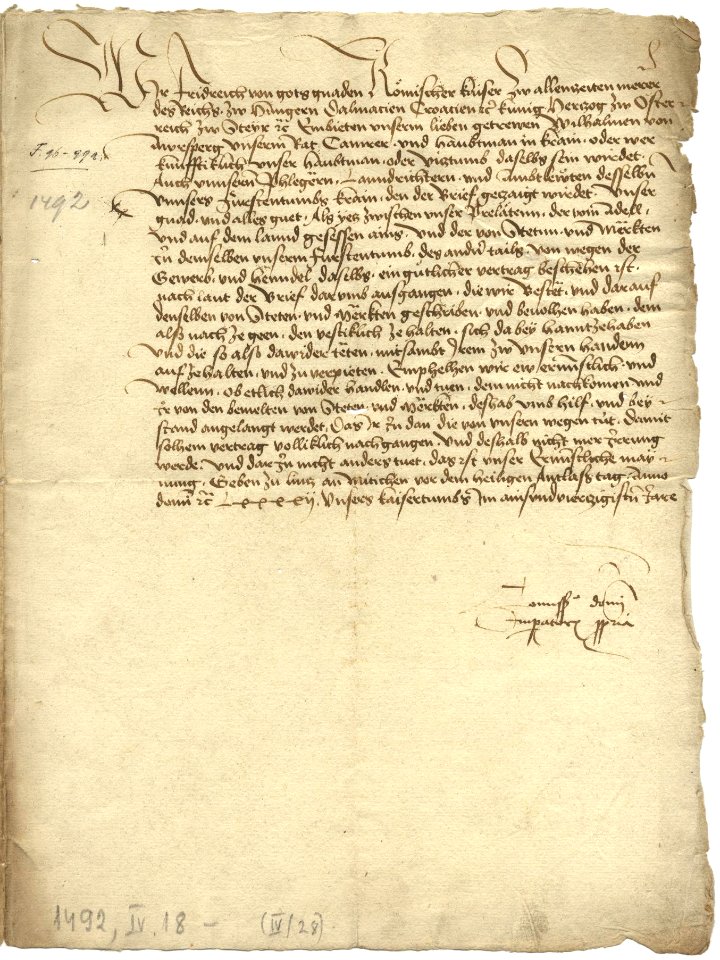 Wir Fridreich von gots gnaden Römischer kaiser zw allenzeiten merer
des Reichs, zw Hungern Dalmacien Croacien rc kunig Hertzog zw Oster
reich zw Steyr rc Embieten unserm lieben getrewen Wilhalmen von
Awrsperg unserm Rat Camrer, und haubtman in krain, oder wer
kunfftiklich unser haubtman, oder viztumb daselbs sein wirdet
Auch unnsern phlegern, Lanndrichtern, und ambtlewten desselbn
F. 96 - 894.
unnsers furstentumbs krain, den der Brief getzaigt wirdet, unser
1492
gnad, und alles guet, Als yetz zwischen unser Prelatenn, der vom Adell,
und auf dem lannd gesessen ains, und der von Stetnn, und Märkten
in demselben unserm furstentumb, des andn tails, von wegen der
Gewerb, und henndel daselbs, ein gutlicher vertrag beschehen ist,
nach laut der Brief darumb ausgangen, die wir Bestët, und darauf
denselben von Steten, und Märkten geschriben, und bevolhen haben, dem
also nach ze geen, den vestiklich ze halten, sich da bey hanntzehaben
und die so also dawider tëten, mitsambt Irem zw unsern handenn
aufzehalten, und zu verpieten, Emphelhen wir ew ernnstlich, und
wellenn, ob etlich dawider handlen, und tuen, dem nicht nachkomen und
Ir von den bemelten von Steten, und Märkten, deshalb umb hilf, und bey
stand angelangt werdet, Das Ir In dan die von unsern wegen tůt, Damit
solhem vertrag volliklich nachgangen, und deshalb nicht mer Irrung
werde, und dar Inn nicht anders tuet, das ist unser Ernnstliche may
nung, Geben zu lintz an mitichen vor dem heiligen Antlasstag, Anno
domi rc Lxxxxij, unsers kaisertumbs Im ainsundvierzigistn Jare
Comissio domi
Imperatoris ppria
1492, IV. 18 - (IV/28)